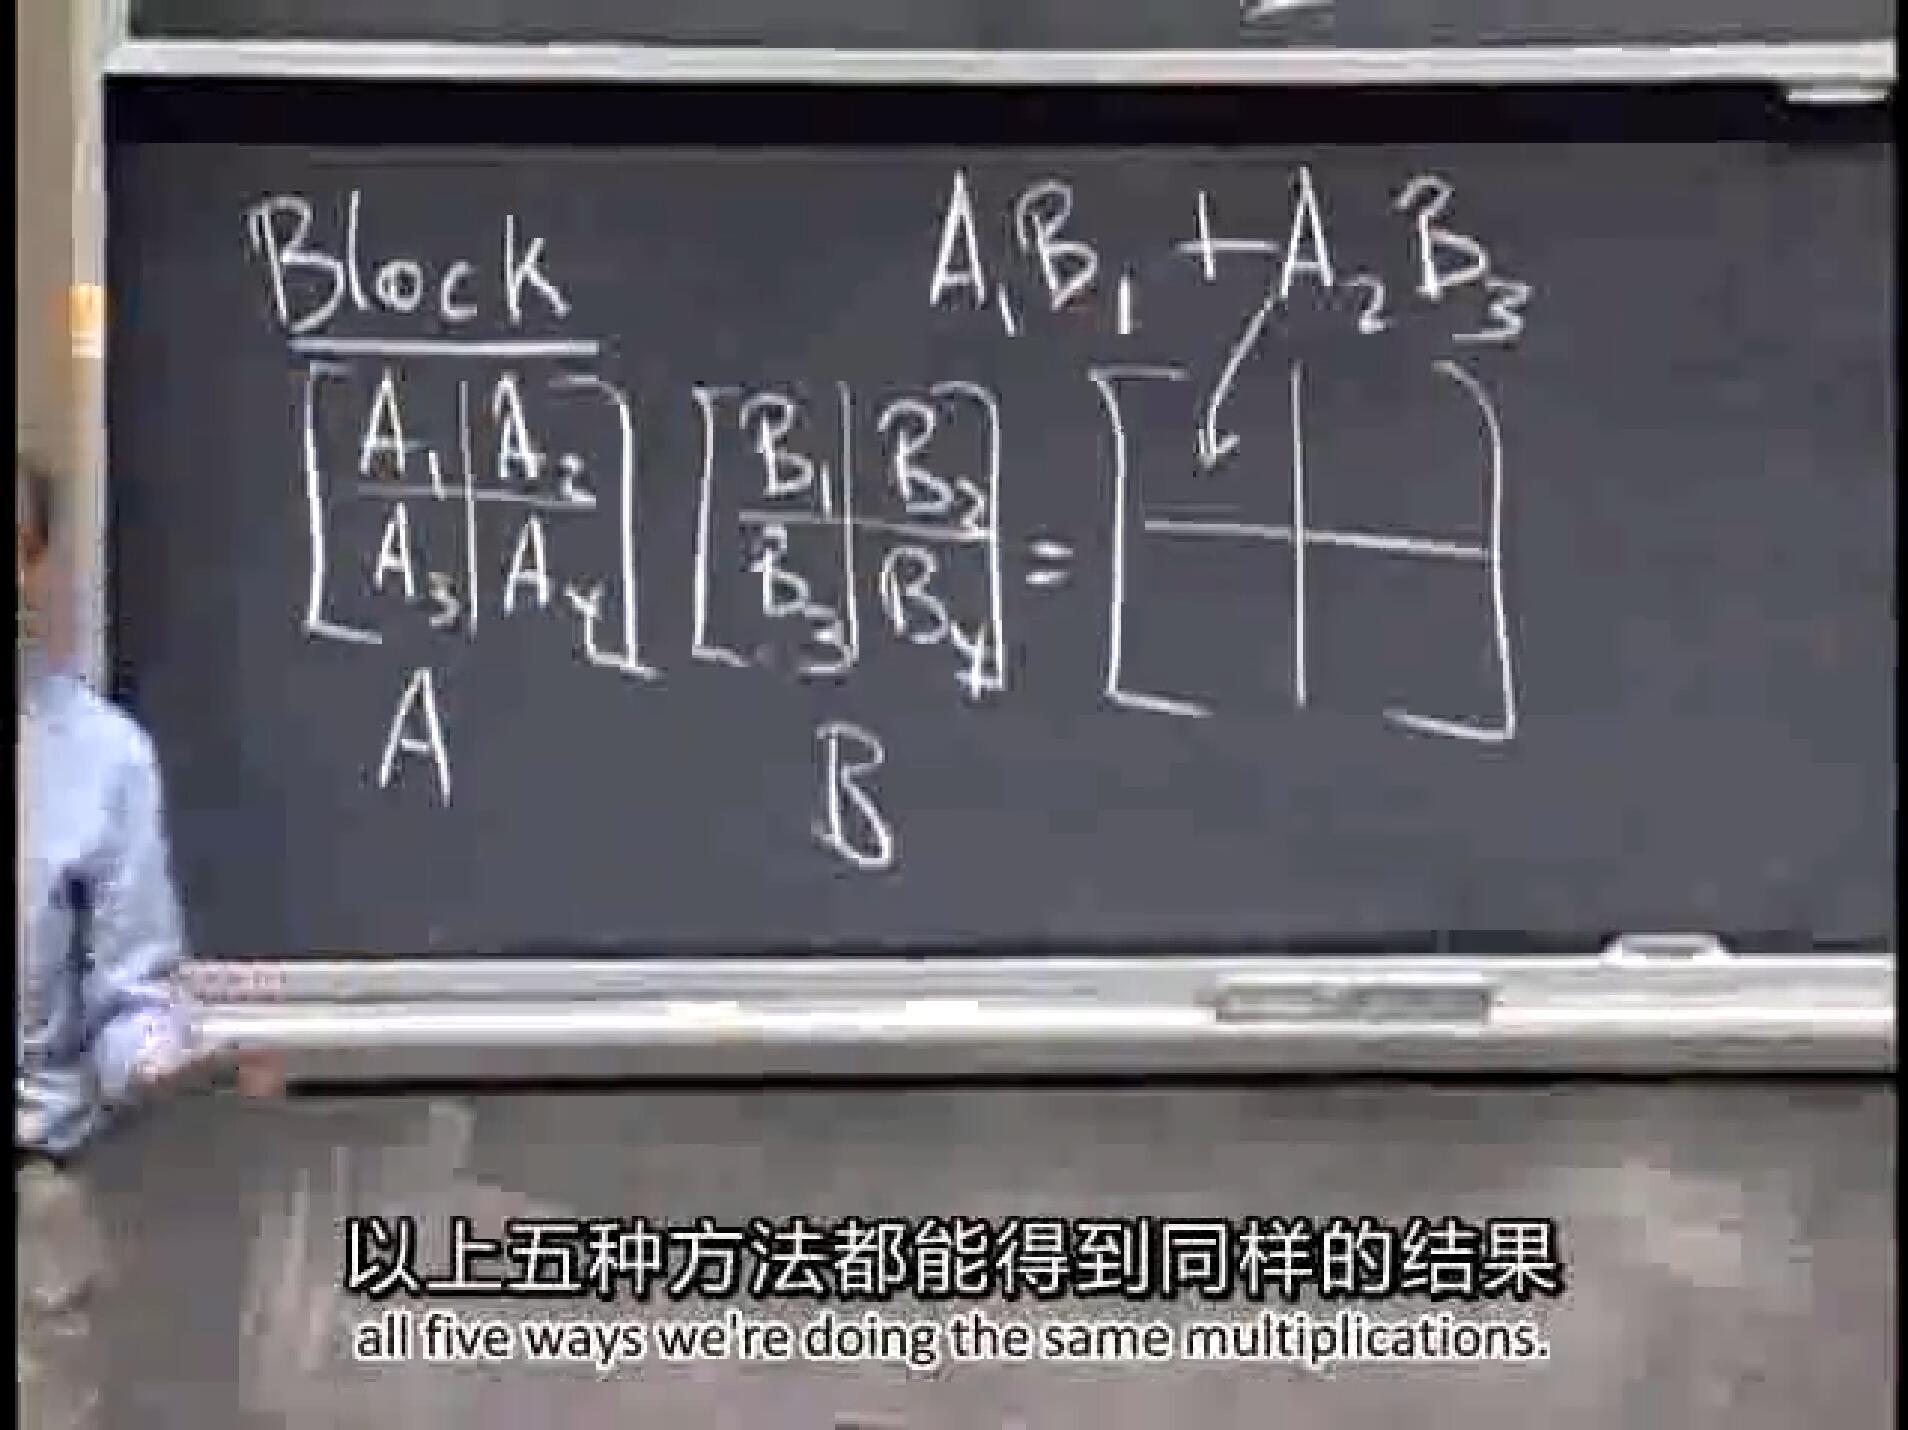 Block
A₁B₁ + A₂B₃
A₁ A₂ B₁ B₂
=
A₃ A₄ B₃ B₄
A B
以上五种方法都能得到同样的结果
all five ways we're doing the same multiplications.